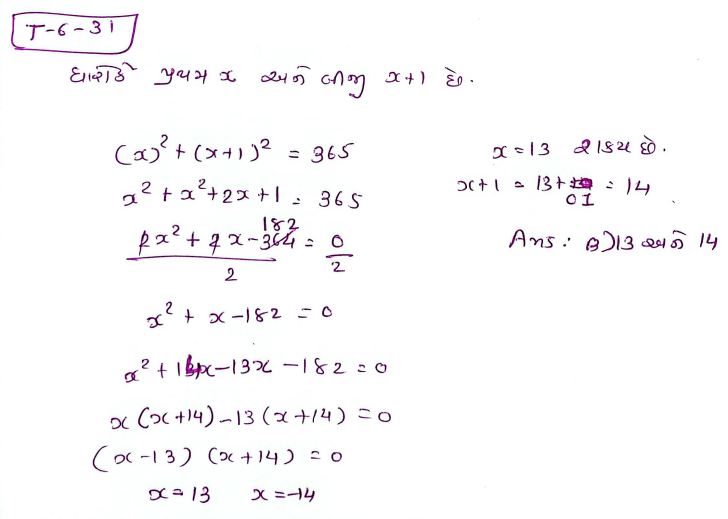 T-6-31
ધારોકે પ્રથમ x અને બીજી x+1 છે.
(x)² + (x+1)² = 365
x² + x² + 2x + 1 = 365
182
2x² + 2x - 364 = 0
2 2
x² + x - 182 = 0
x² + 14x - 13x - 182 = 0
x (x+14) - 13 (x+14) = 0
(x-13) (x+14) = 0
x = 13 x = -14
x = 13 શક્ય છે.
x+1 = 13+ = 14
01
Ans : B) 13 અને 14